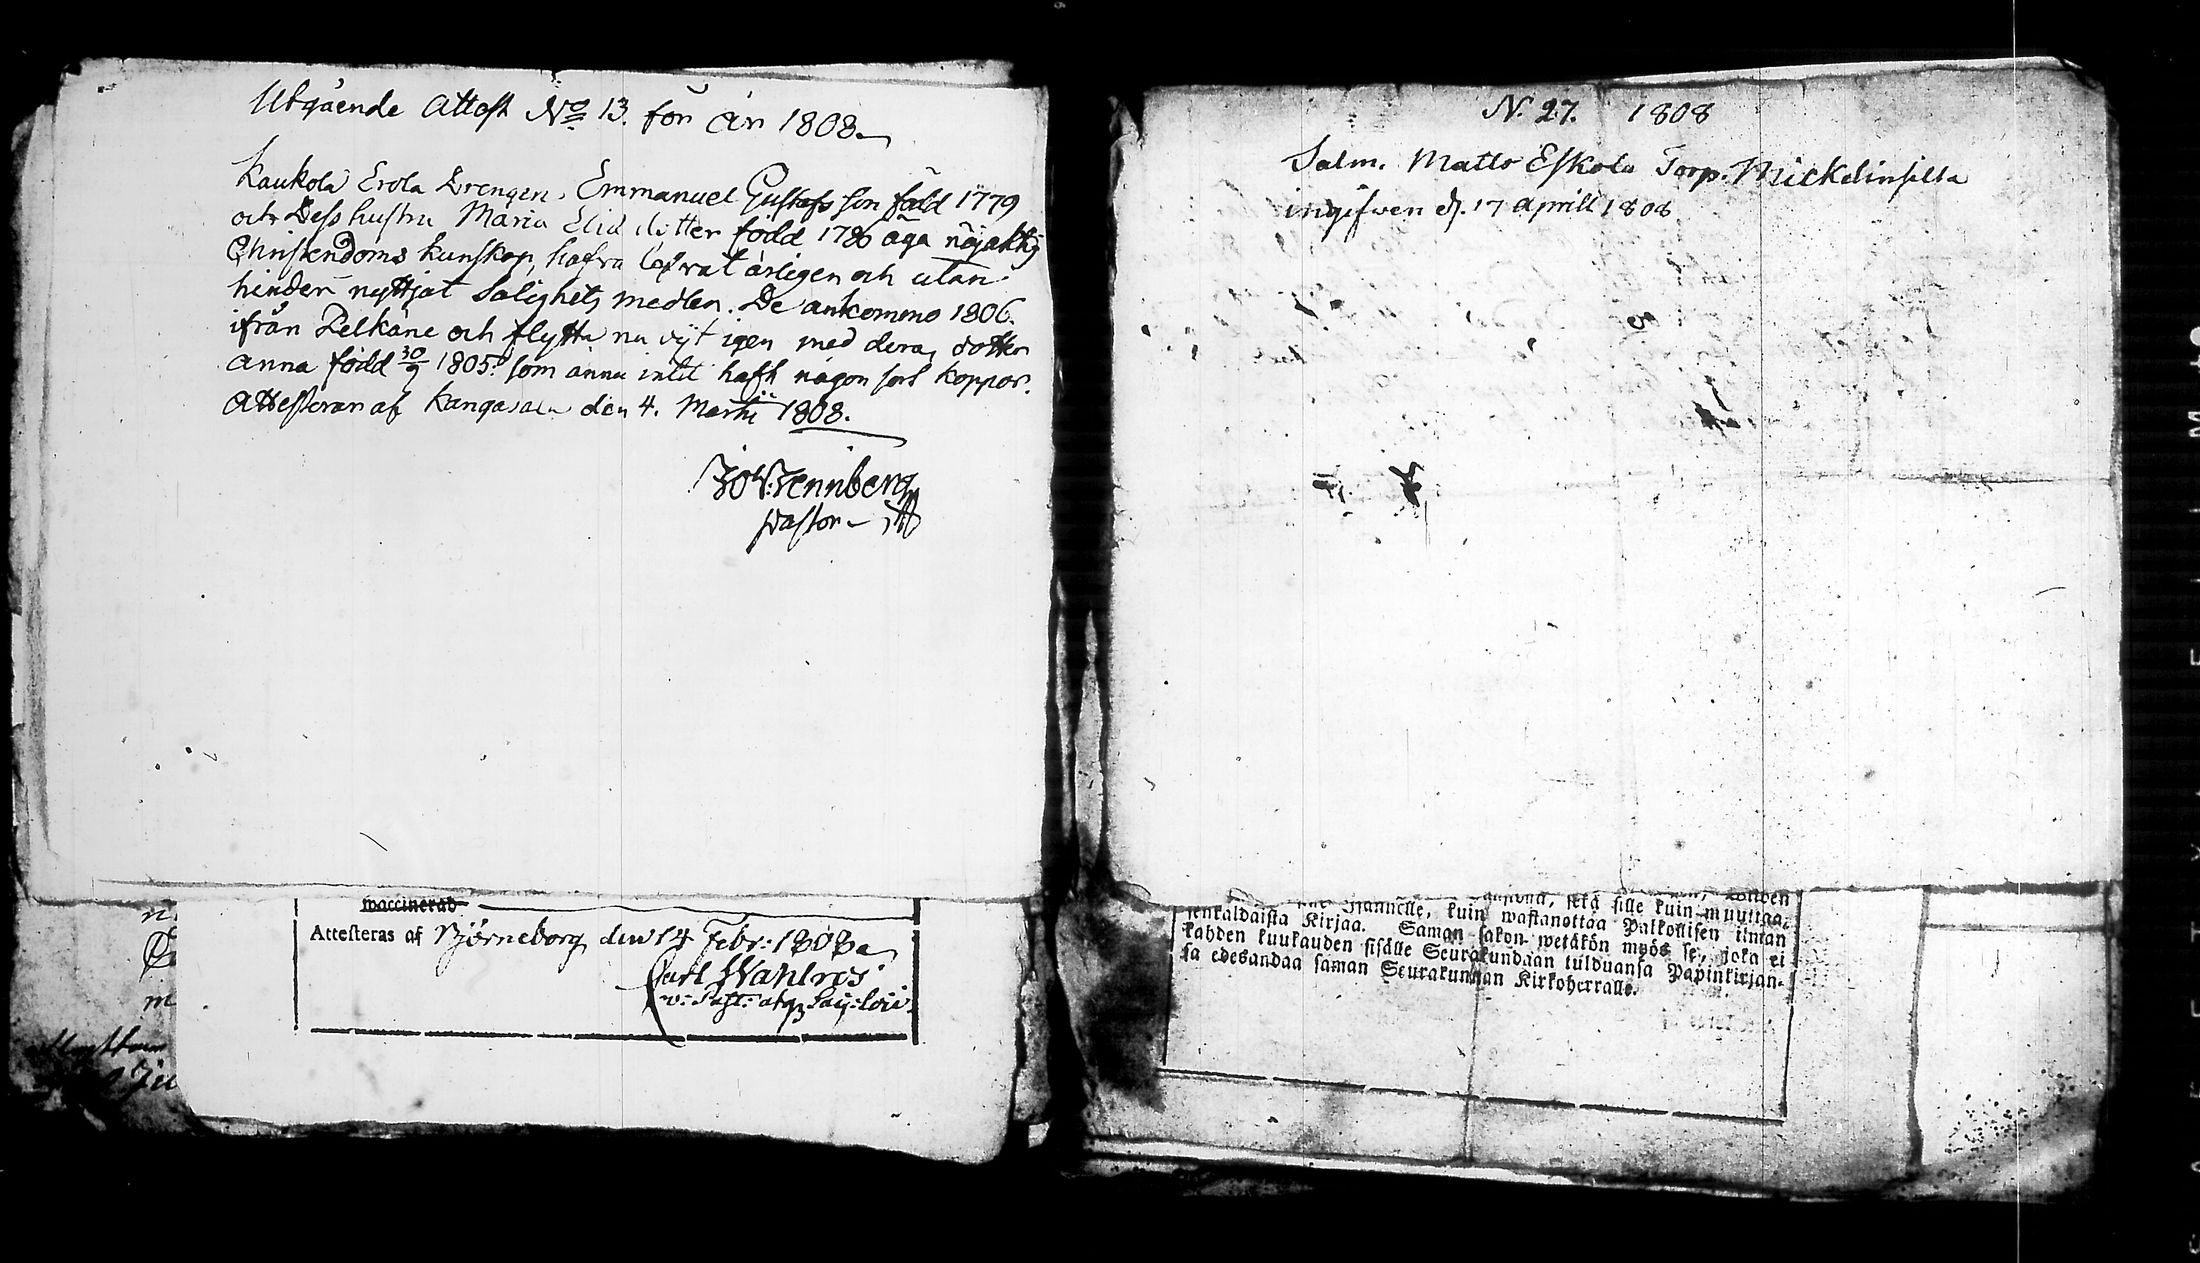 Utgående Attest No 13. för år 1808.
Kaukola Erola Drengen, Emmanuel Gustafs son född 1779
och Dess hustru Maria Elia dotter född 1780 äga nöjaktig
Christendoms kunskap, hafva låfvat årligen och utan
hinder nyttjat Salighets medlen. De ankommo 1806.
ifrån Pelkäne och flytta nu ut igen med deras dotter
Anna född 30/9 1805. som ännu intet haft någon sort koppor.
Attesterar af Kangasala den 4. Martii 1808.
Pastor
waccinerad
Attesteras af Björneborg den 14 Febr: 1808
Carl Wahlros
N. 27. 1808
Salm. Matts Eskola Torp. Mickelinsilta
ingifven d. 17 Aprill 1808
sekä sille kuin muuttaa,
kuin wastanottaa Palkollisen ilman
senkaldaista Kirjaa. Saman sakon wetäkön myös se, joka ei
kahden kuukauden sisälle Seurakundaan tulduansa Papinkirjan-
sa edesandaa saman Seurakunnan Kirkoherralle.